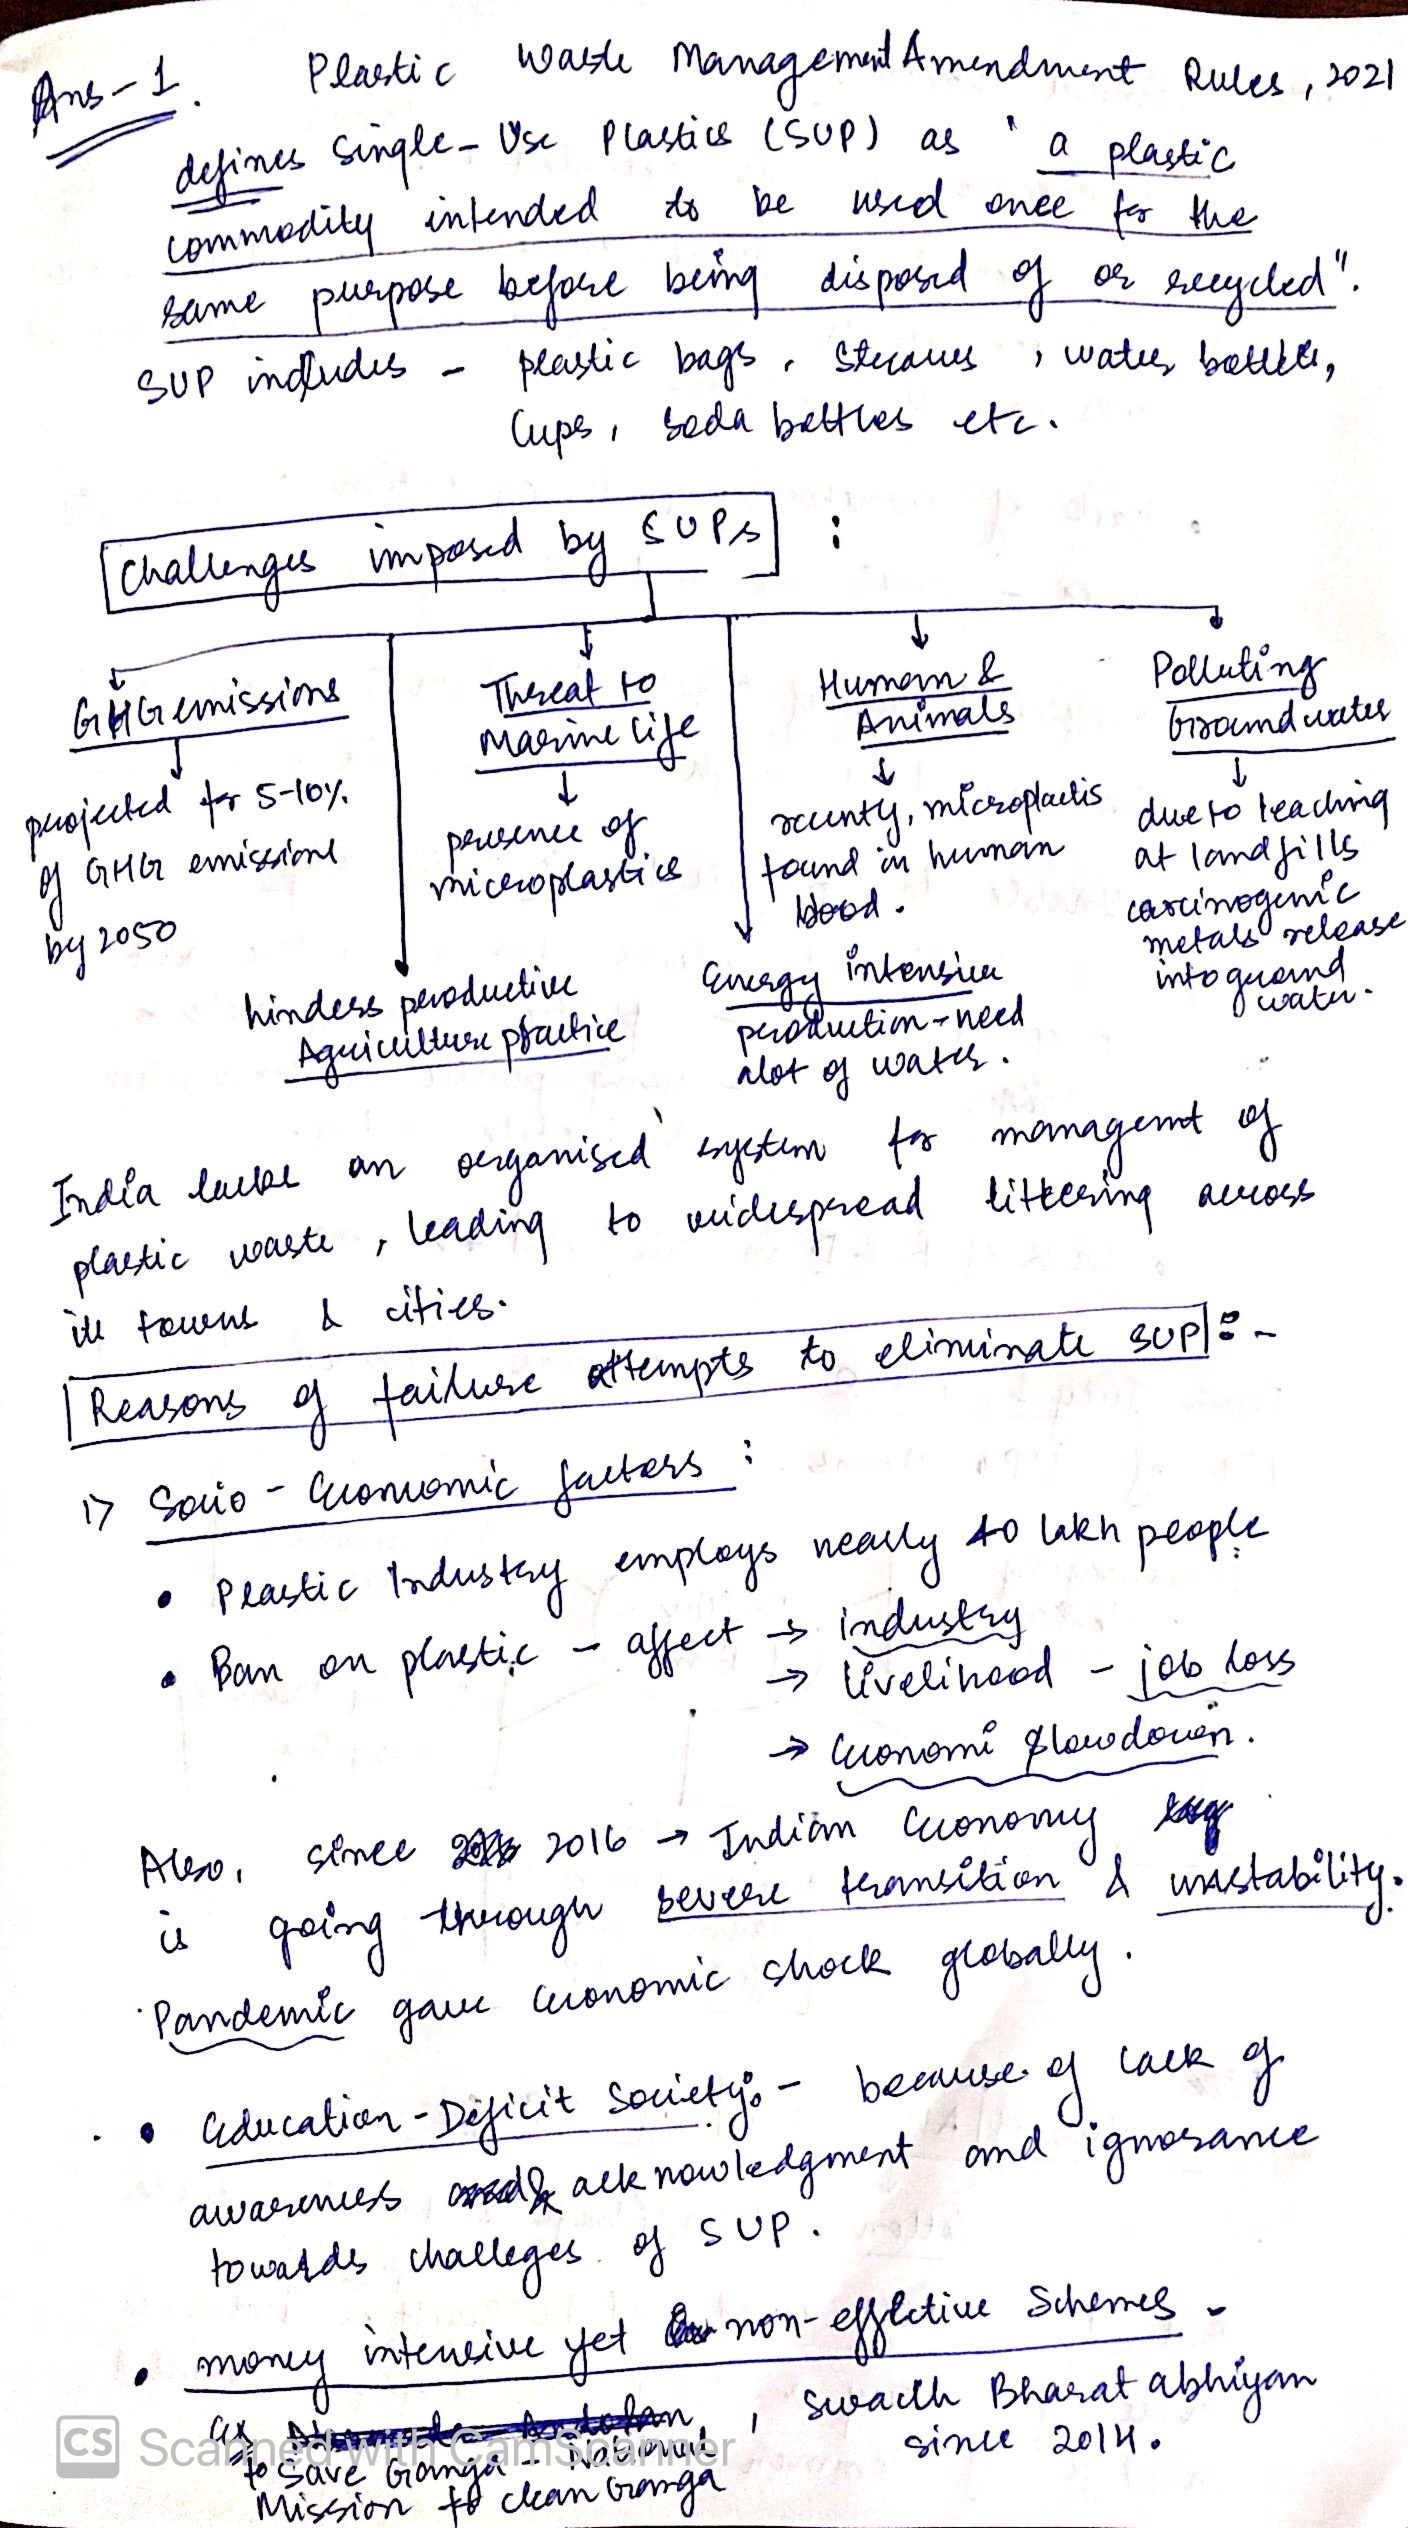 Ans-1. Plastic Waste Management Amendment Rules, 2021
defines Single-Use Plastics (SUP) as ' a plastic
commodity intended to be used once for the
same purpose before being disposed of or recycled".
SUP includes - plastic bags, straws, water bottles,
Cups, soda bottles etc.
Challenges imposed by SUPs :
GHG emissions
projected for 5-10%
of GHG emissions
by 2050
hinders productive
Agriculture practice
Threat to
Marine life
presence of
microplastics
Energy intensive
production - need
alot of water.
Human &
Animals
recently, microplactis
found in human
blood.
Polluting
Groundwater
due to leaching
at landfills
carcinogenic
metals release
into ground
water.
India lacks an organised system for managemt of
plastic waste, leading to widespread littering across
its towns & cities.
Reasons of failure attempts to eliminate SUP :-
1> Socio-Economic factors :
• Plastic Industry employs nearly 40 lakh people
• Ban on plastic - affect → industry
→ livelihood - job loss
→ Economi slowdown.
Also, since 2016 → Indian Economy
is going through severe transition & unstability.
Pandemic gave economic shock globally.
• Education-Deficit Society:- because of lack of
awareness & acknowledgment and ignorance
towards challeges of SUP.
• money intensive yet non-effective Schemes -
eg to Save Ganga - National
Mission to clean Ganga
, Swachh Bharat abhiyan
since 2014.
CS Scanned with CamScanner